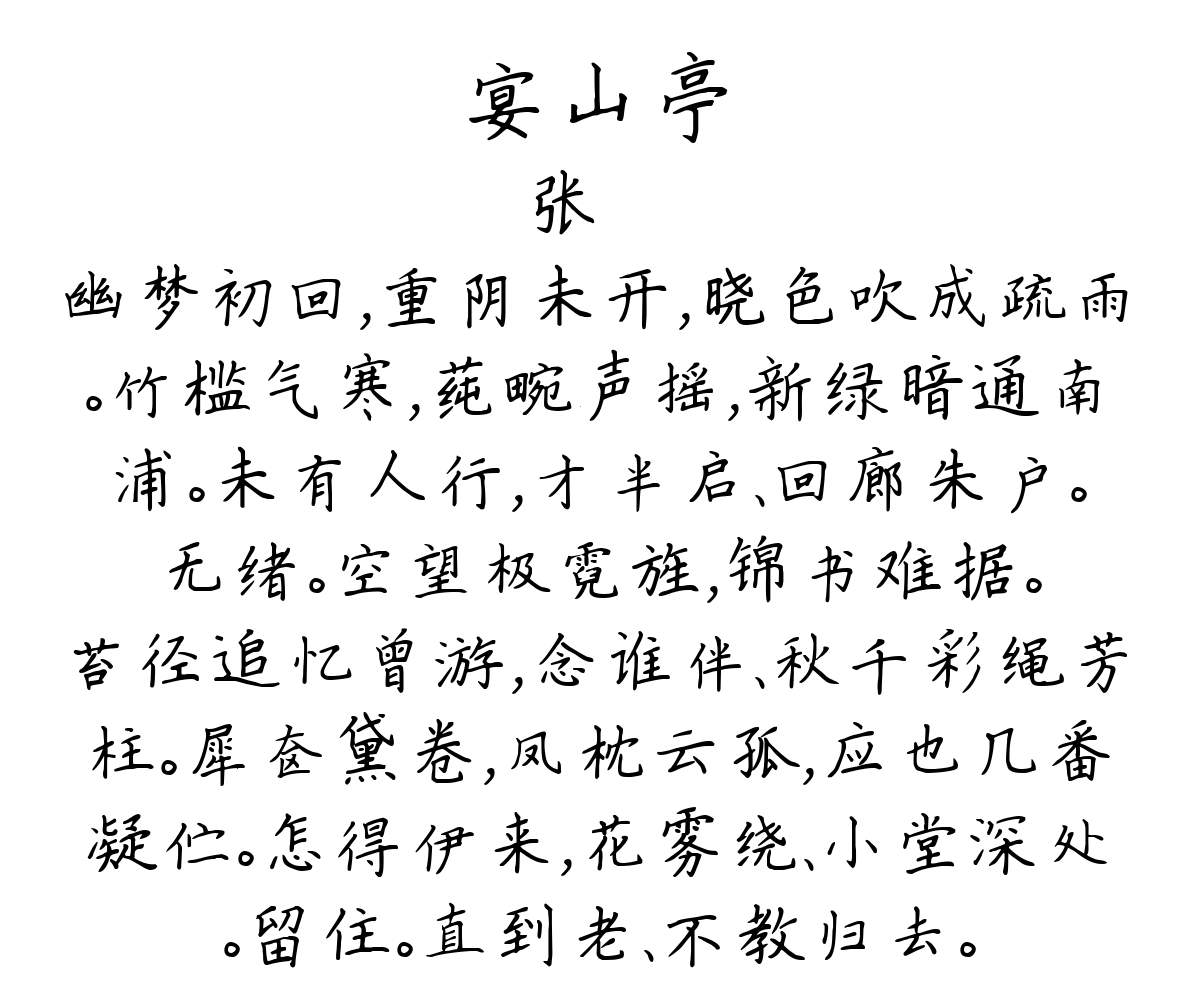 宴山亭
张
幽梦初回,重阴未开,晓色吹成疏雨
。竹槛气寒,莼畹声摇,新绿暗通南
浦。未有人行,才半启、回廊朱户。
无绪。空望极霓旌,锦书难据。
苔径追忆曾游,念谁伴、秋千彩绳芳
柱。犀奁黛卷,凤枕云孤,应也几番
凝伫。怎得伊来,花雾绕、小堂深处
。留住。直到老、不教归去。